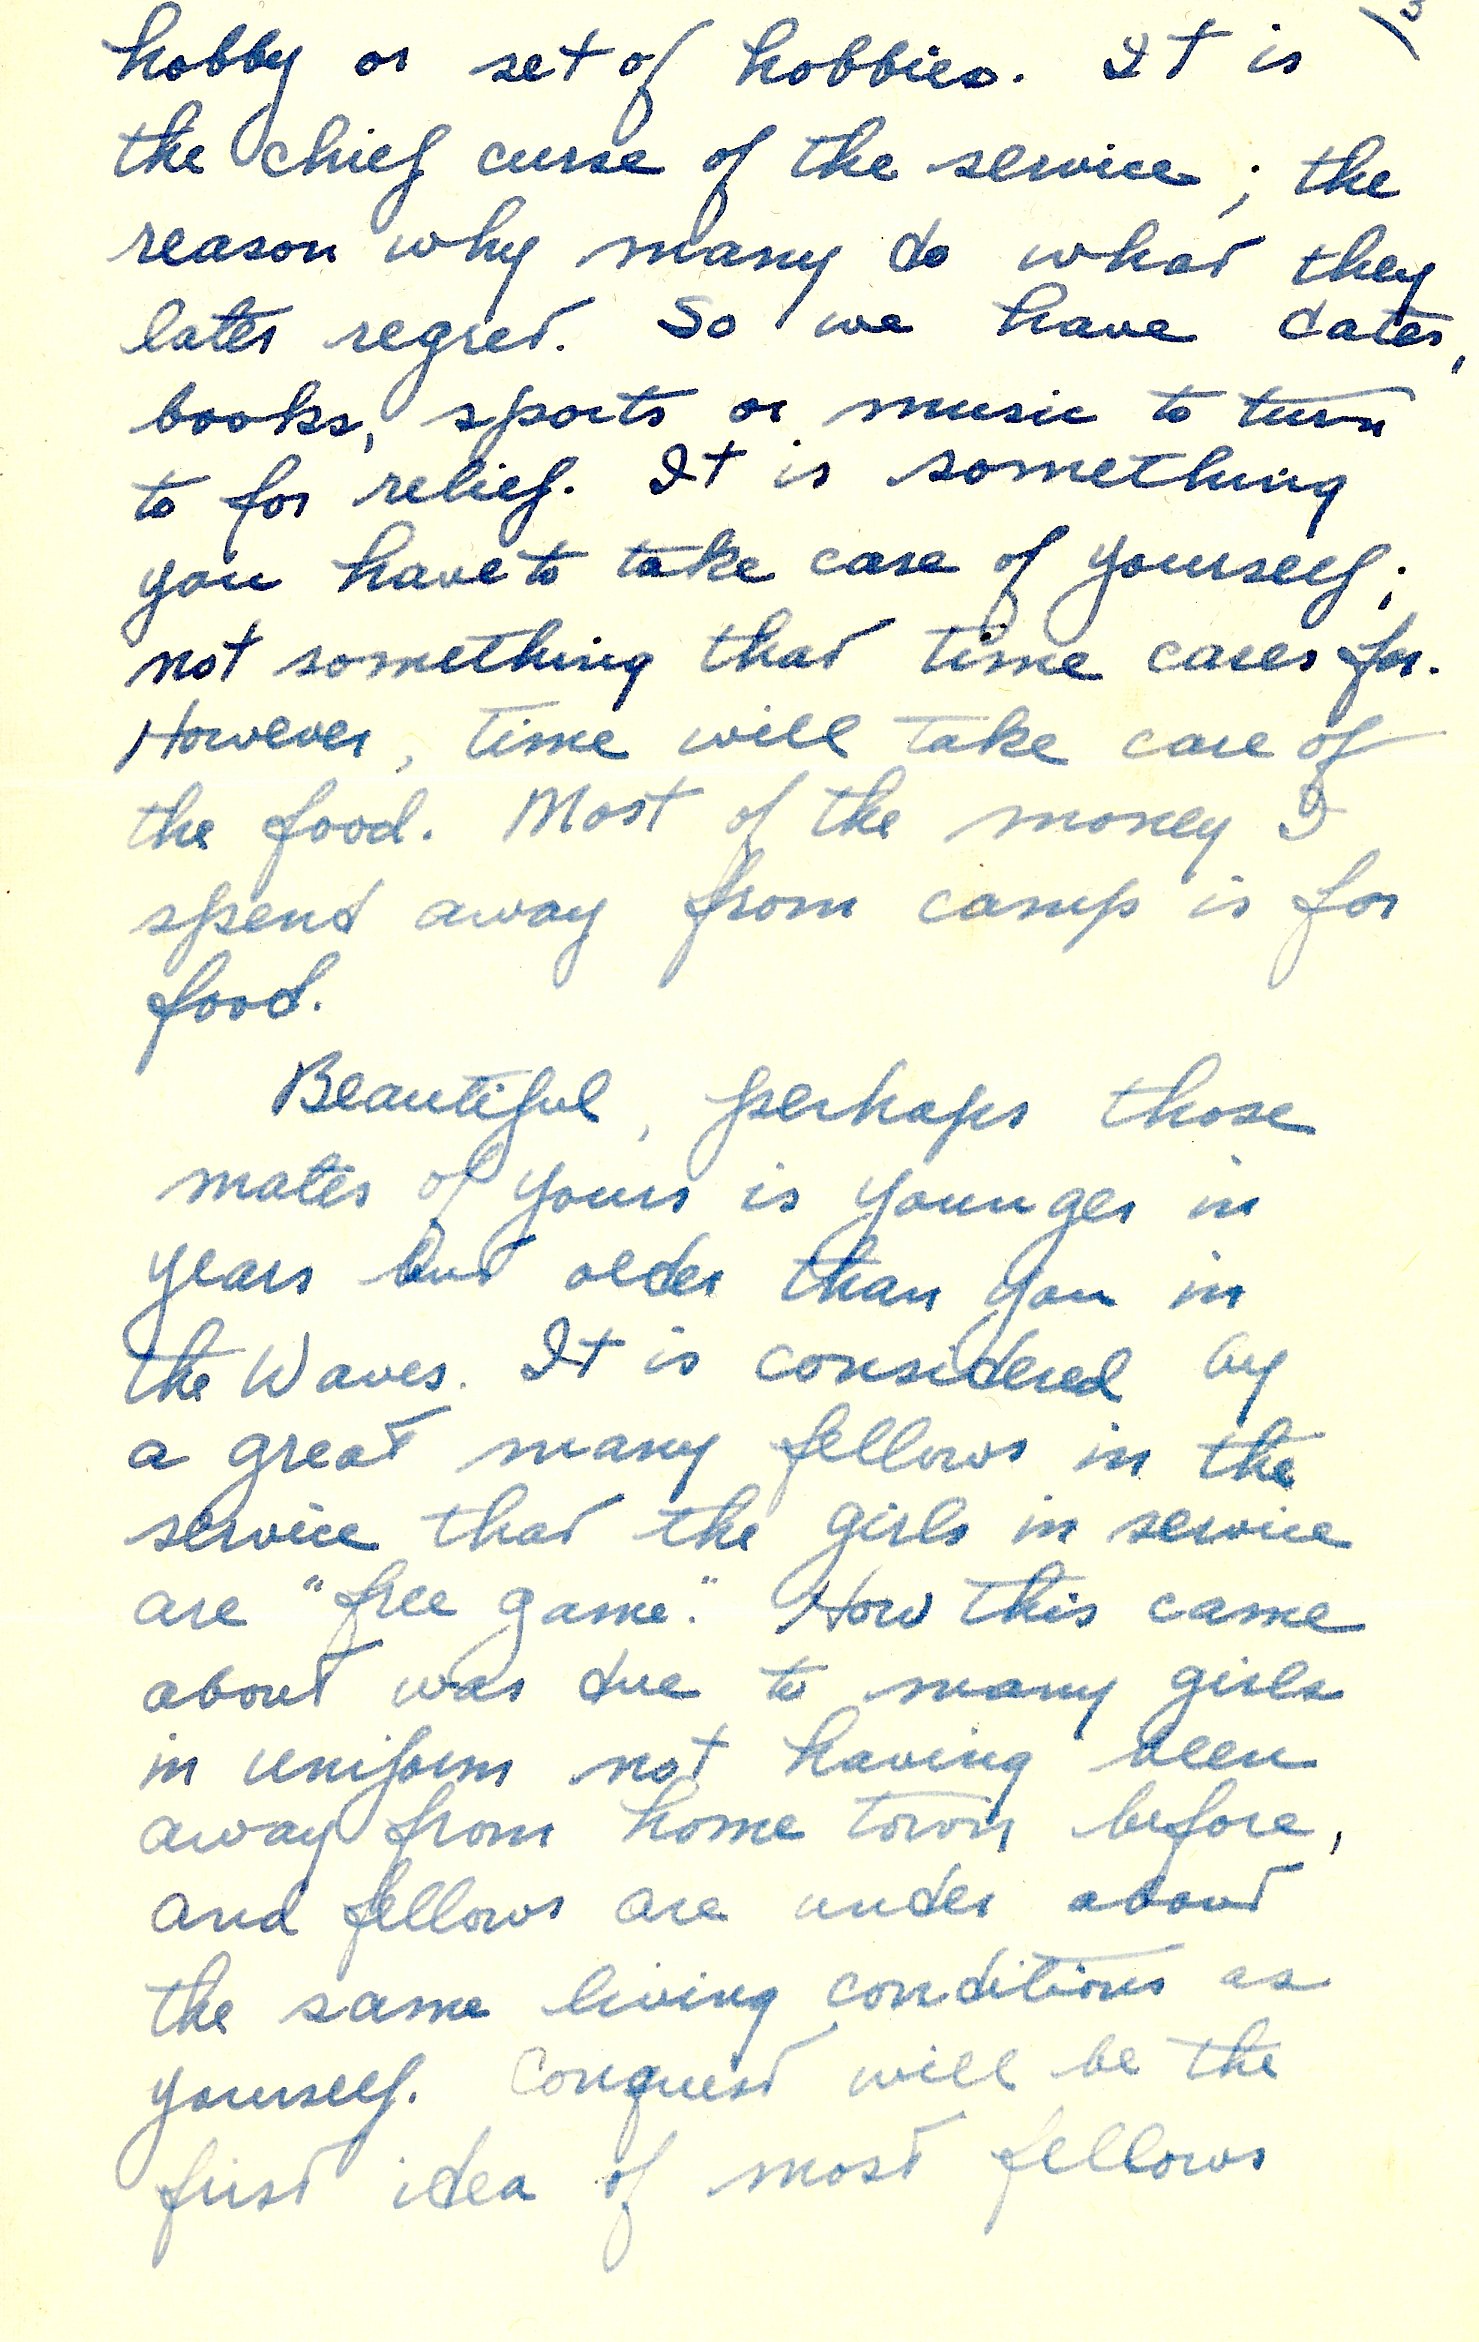 3
hobby or set of hobbies. It is
the chief curse of the service; the
reason why many do what they
later regret. So we have dates,
books, sports or music to turn
to for relief. It is something
you have to take care of yourself;
not something that time cares for.
However, time will take care of
the food. Most of the money I
spend away from camp is for
food.
Beautiful, perhaps those
mates of yours is younger in
years but older than you in
the Waves. It is considered by
a great many fellows in the
service that the girls in service
are "free game." How this came
about was due to many girls
in uniform not having been
away from home town before,
and fellows are under about
the same living conditions as
yourself. Conquest will be the
first idea of most fellows